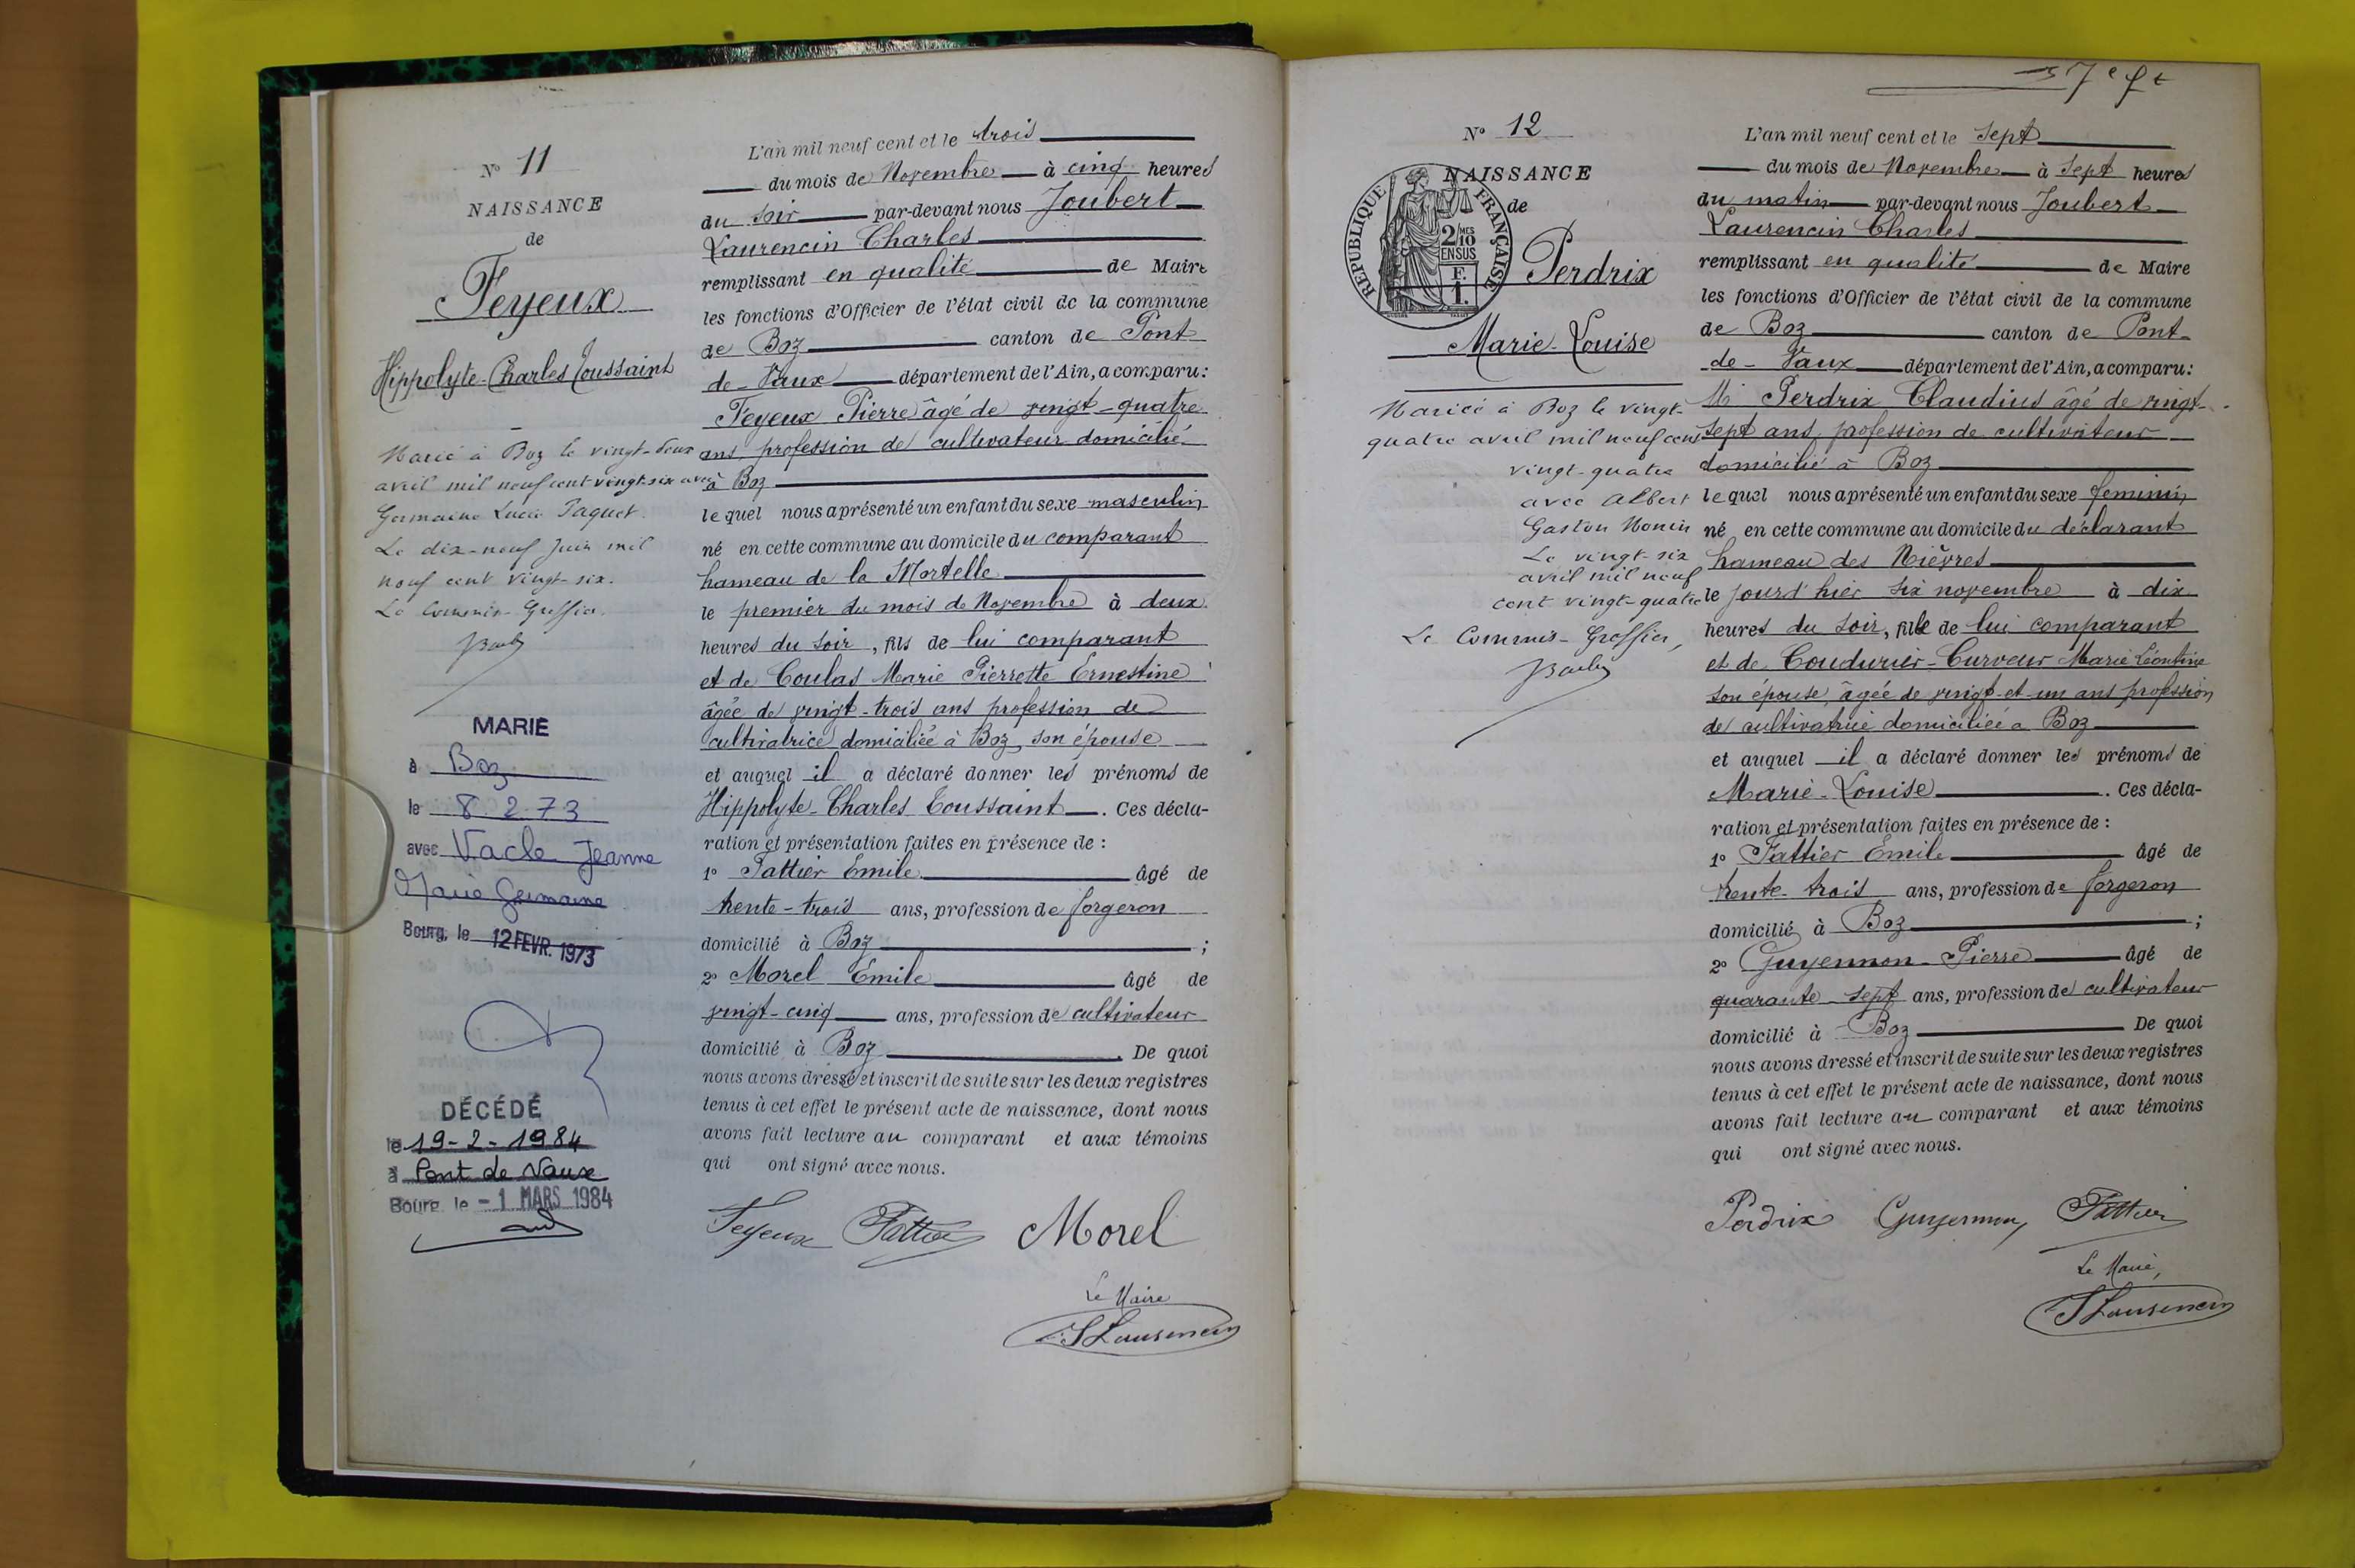 N° 11
NAISSANCE
de
Feyeux
Hippolyte-Charles Toussaint
Marié à Boz le vingt-deux
avril mil neuf cent vingt-six avec
Germaine Lucie Paquet.
Le dix-neuf Juin mil
neuf cent vingt-six.
Le Commis-Greffier.
MARIE
à Boz
le 8.2.73
avec Vacle Jeanne
Marie Germaine
Bourg, le 12 FEVR. 1973
DÉCÉDÉ
le 19-2-1984
à Pont de Vaux
Bourg, le -1 MARS 1984
L'an mil neuf cent et le trois
du mois de Novembre à cinq heures
du soir par-devant nous Joubert
Laurencin Charles
remplissant en qualité de Maire
les fonctions d'Officier de l'état civil de la commune
de Boz canton de Pont
de-Vaux département de l'Ain, a comparu:
Feyeux Pierre âgé de vingt-quatre
ans, profession de cultivateur domicilié
à Boz
lequel nous a présenté un enfant du sexe masculin,
né en cette commune au domicile du comparant
hameau de la Mortelle
le premier du mois de Novembre à deux
heures du soir, fils de lui comparant
et de Coulas Marie Pierrette Ernestine
âgée de vingt-trois ans profession de
cultivatrice domiciliée à Boz, son épouse
et auquel il a déclaré donner les prénoms de
Hippolyte-Charles Toussaint. Ces décla-
ration et présentation faites en présence de :
1° Fattier Emile âgé de
trente-trois ans, profession de forgeron
domicilié à Boz ;
2° Morel Emile âgé de
vingt-cinq ans, profession de cultivateur
domicilié à Boz. De quoi
nous avons dressé et inscrit de suite sur les deux registres
tenus à cet effet le présent acte de naissance, dont nous
avons fait lecture au comparant et aux témoins
qui ont signé avec nous.
Feyeux Fattier Morel
Le Maire
N° 12
NAISSANCE
de
RÉPUBLIQUE FRANÇAISE
2/10 MES
EN SUS
F.
1.
Perdrix
Marie-Louise
Mariée à Boz le vingt-
quatre avril mil neuf cent
vingt-quatre
avec Albert
Gaston Monin
Le vingt-six
avril mil neuf
cent vingt-quatre
Le Commis-Greffier,
L'an mil neuf cent et le sept
du mois de Novembre à sept heures
du matin par-devant nous Joubert
Laurencin Charles
remplissant en qualité de Maire
les fonctions d'Officier de l'état civil de la commune
de Boz canton de Pont-
de-Vaux département de l'Ain, a comparu:
Mr Perdrix Claudius âgé de vingt-
sept ans, profession de cultivateur
domicilié à Boz
lequel nous a présenté un enfant du sexe feminin,
né en cette commune au domicile du déclarant
hameau des Nièvres
le jourd'hier six novembre à dix
heures du soir, fille de lui comparant
et de Coudurier-Curveur Marie Léontine
son épouse, âgée de vingt-et-un ans profession
de cultivatrice domiciliée à Boz
et auquel il a déclaré donner les prénoms de
Marie-Louise. Ces décla-
ration et présentation faites en présence de :
1° Fattier Emile âgé de
trente-trois ans, profession de forgeron
domicilié à Boz ;
2° Guyennon-Pierre âgé de
quarante-sept ans, profession de cultivateur
domicilié à Boz De quoi
nous avons dressé et inscrit de suite sur les deux registres
tenus à cet effet le présent acte de naissance, dont nous
avons fait lecture au comparant et aux témoins
qui ont signé avec nous.
Perdrix Guyennon, Fattier
Le Maire,